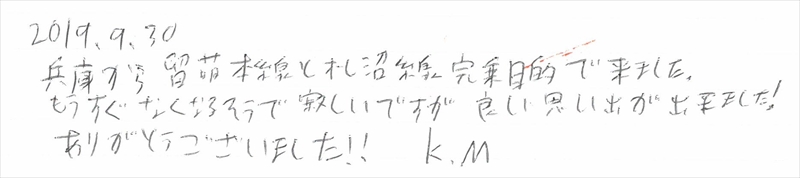 2019.9.30
兵庫から留萌本線と札沼線完乗目的で来ました。
もうすぐなくなるそうで寂しいですが良い思い出が出来ました!
ありがとうございました!! K.M